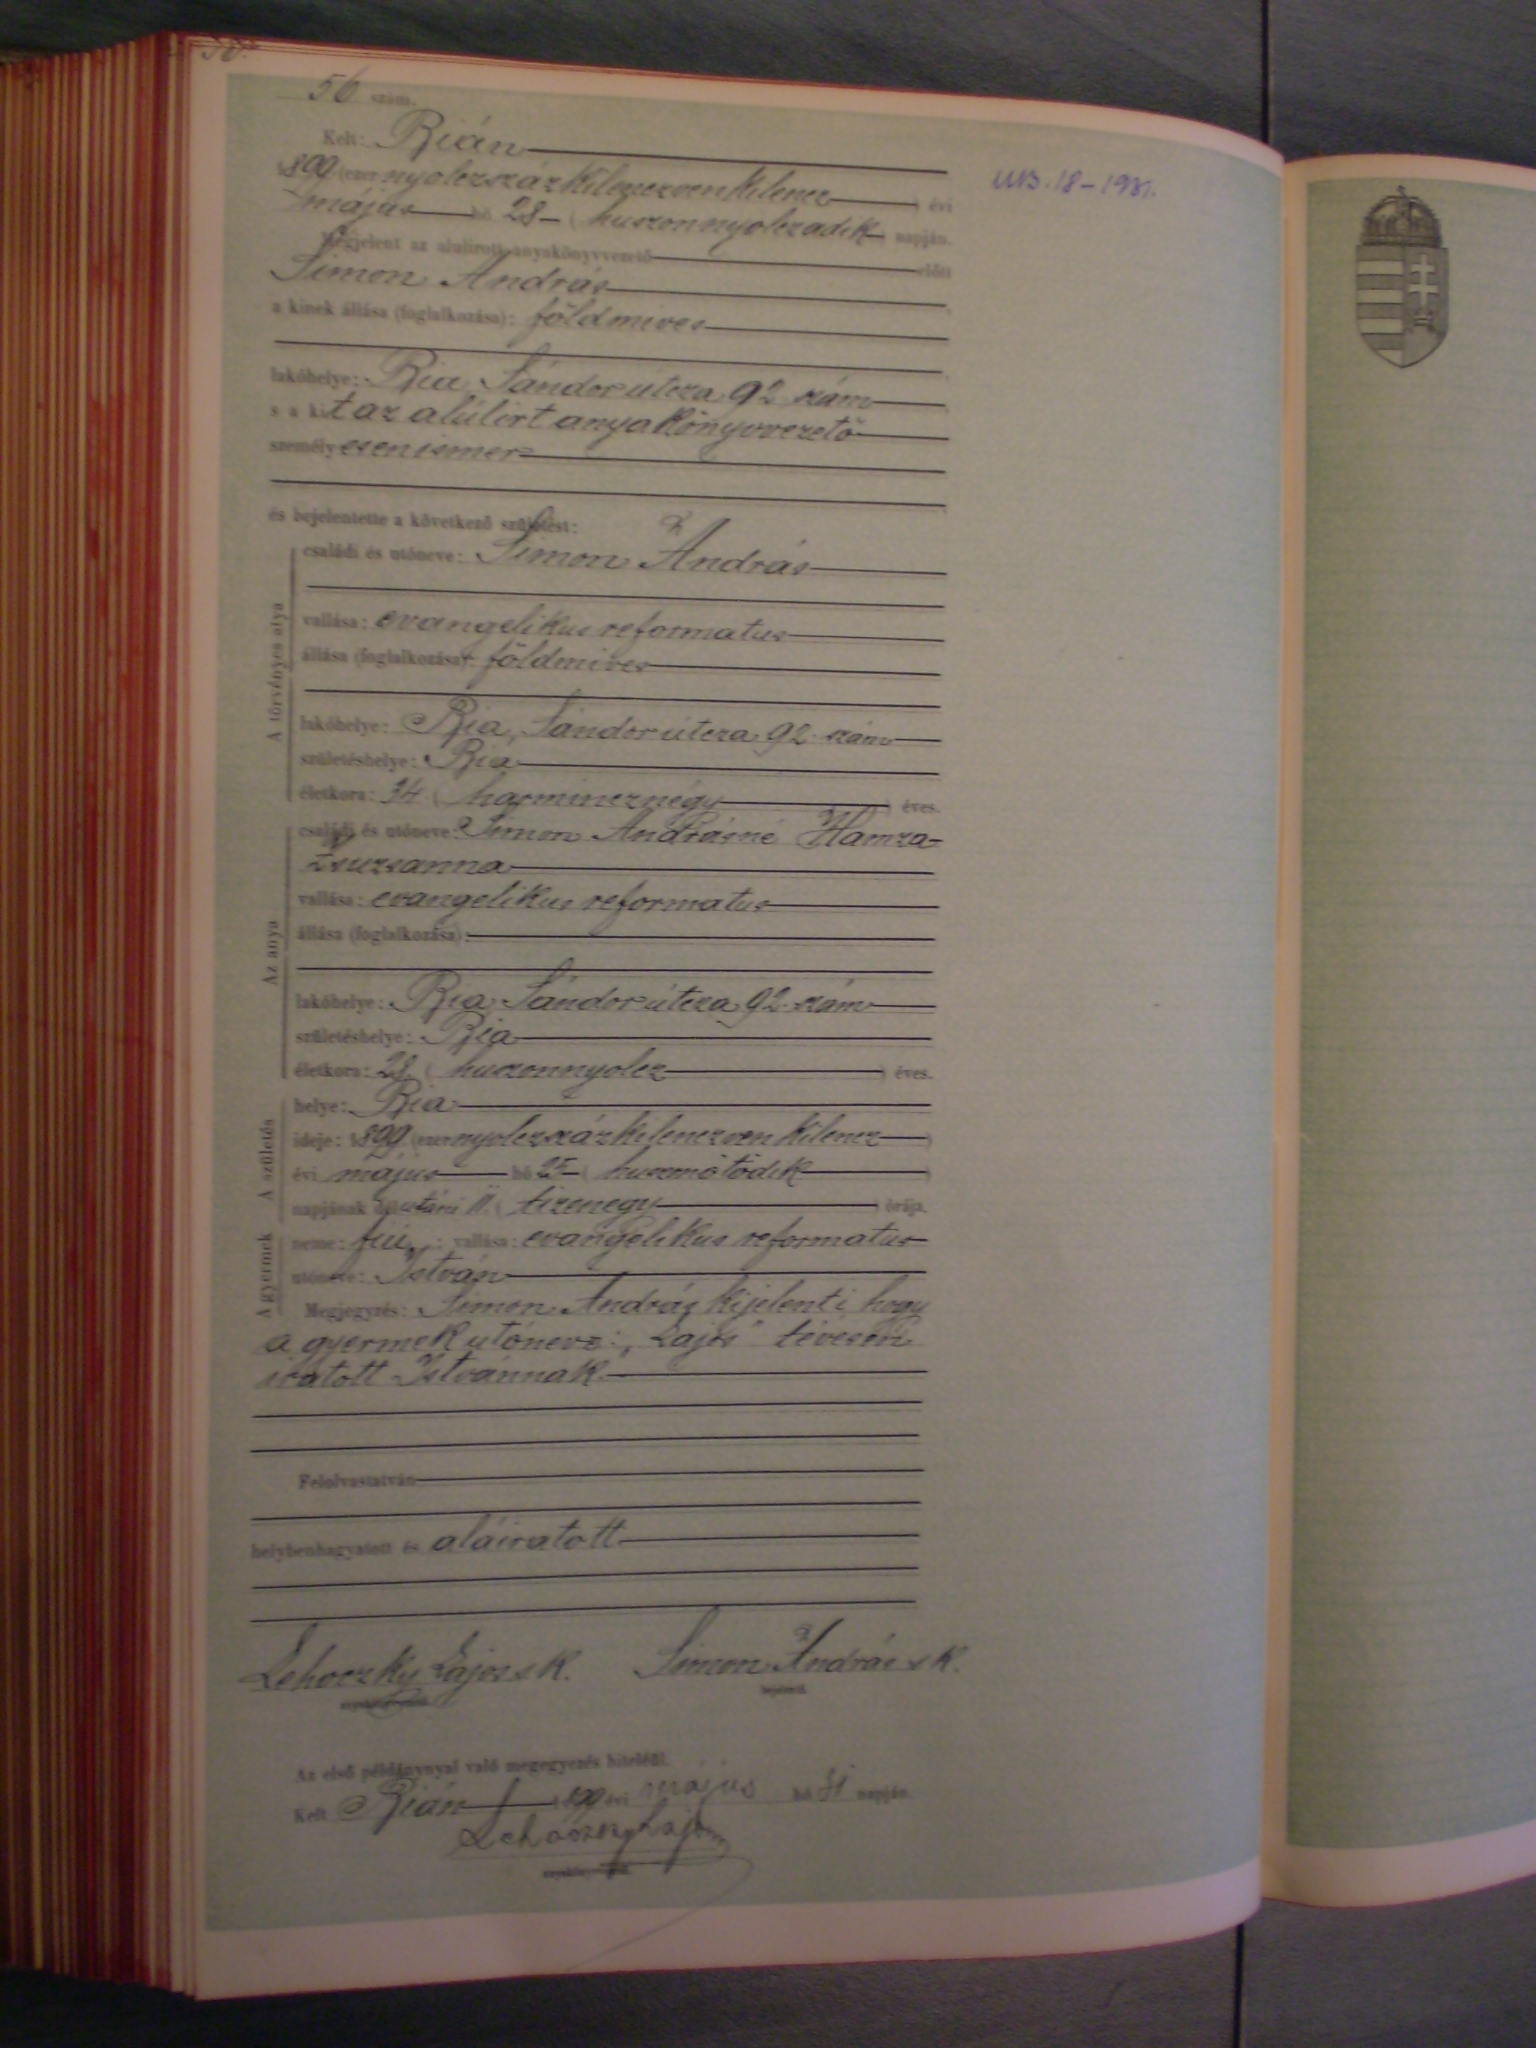 56 szám.
Kelt: Bián
1899 (ezernyolczszázkilenczvenkilencz) évi
május hó 28 (huszonnyolczadik) napján.
Megjelent az alulírott anyakönyvvezető előtt
Simon András
a kinek állása (foglalkozása): földmives
lakóhelye: Bia, Sándor útcza 92. szám
s a kit az alúlirt anyakönyvvezető
személyesen ismer
és bejelentette a következő születést:
A törvényes atya
családi és utóneve: Simon András
vallása: evangelikus reformatus
állása (foglalkozása): földmives
lakóhelye: Bia, Sándor útcza 92. szám
születéshelye: Bia
életkora: 34 (harmincznégy) éves.
Az anya
családi és utóneve: Simon Andrásné Hamza
Zsuzsanna
vallása: evangelikus reformatus
állása (foglalkozása):
lakóhelye: Bia, Sándor útcza 92. szám
születéshelye: Bia
életkora: 28 (huszonnyolcz) éves.
A születés
helye: Bia
ideje: 1899 (ezernyolczszázkilenczvenkilencz)
évi május hó 25 (huszonötödik)
napjának délutáni 11. (tizenegy) órája.
A gyermek
neme: fiú; vallása: evangelikus reformatus
utóneve: István
Megjegyzés: Simon András kijelenti hogy
a gyermek utóneve: „Lajos" tévesen
iratott Istvánnak.
Felolvastatván
helybenhagyatott és aláiratott
Lehoczky Lajos s k. Simon András s k.
bejelentő.
Az első példánynyal való megegyezés hiteléül.
Kelt Bián 1899 évi május hó 31 napján.
Lehoczky Lajos